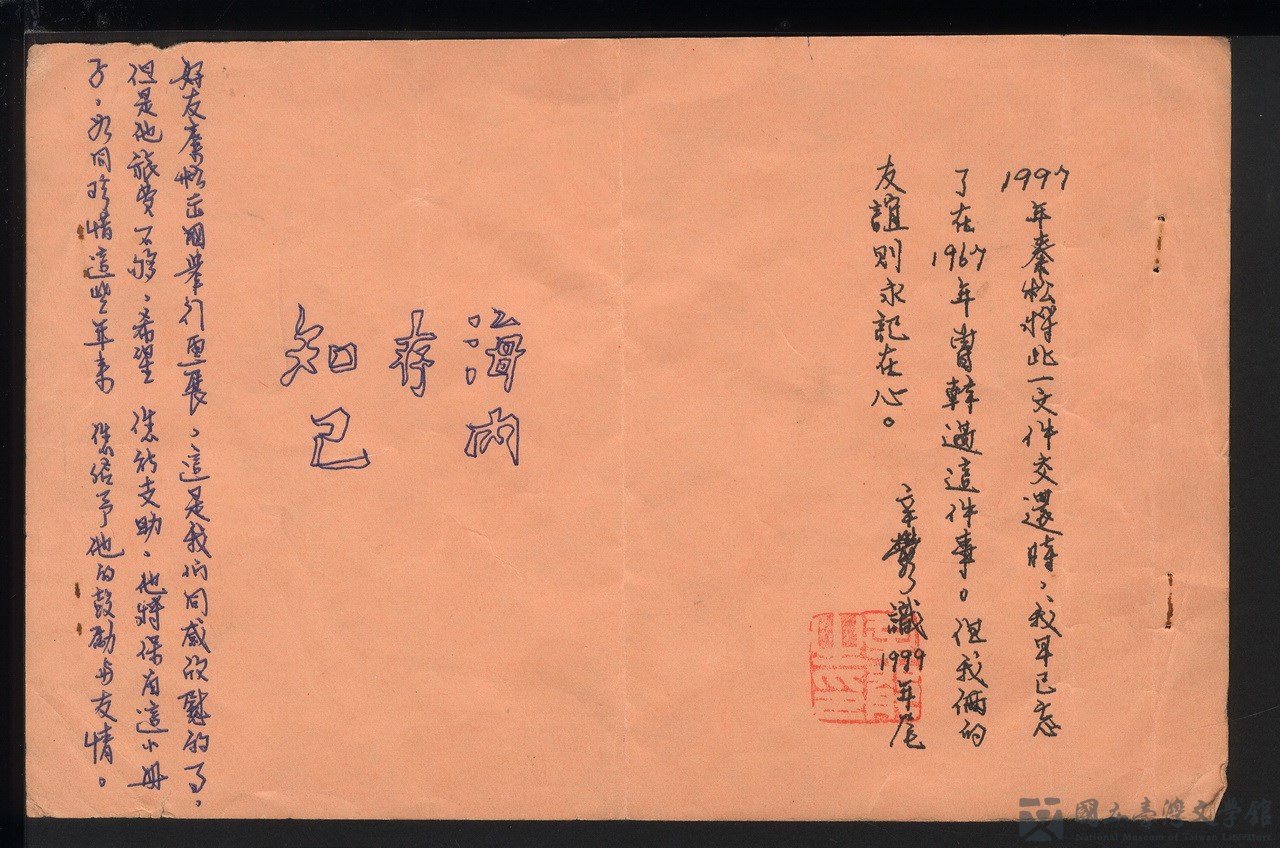 1997年秦松將此一文件交還時，我早已忘
了在1967年曾幹過這件事。但我倆的
友誼則永記在心。
辛鬱識 1999年尾
海內
存
知己
好友秦松出國舉行畫展，這是我們同感欣慰的事，
但是他旅費不夠，希望 您能支助，他將保有這小冊
子，永同珍惜這些年來 您給予他的鼓勵与友情。
國立臺灣文學館
National Museum of Taiwan Literature